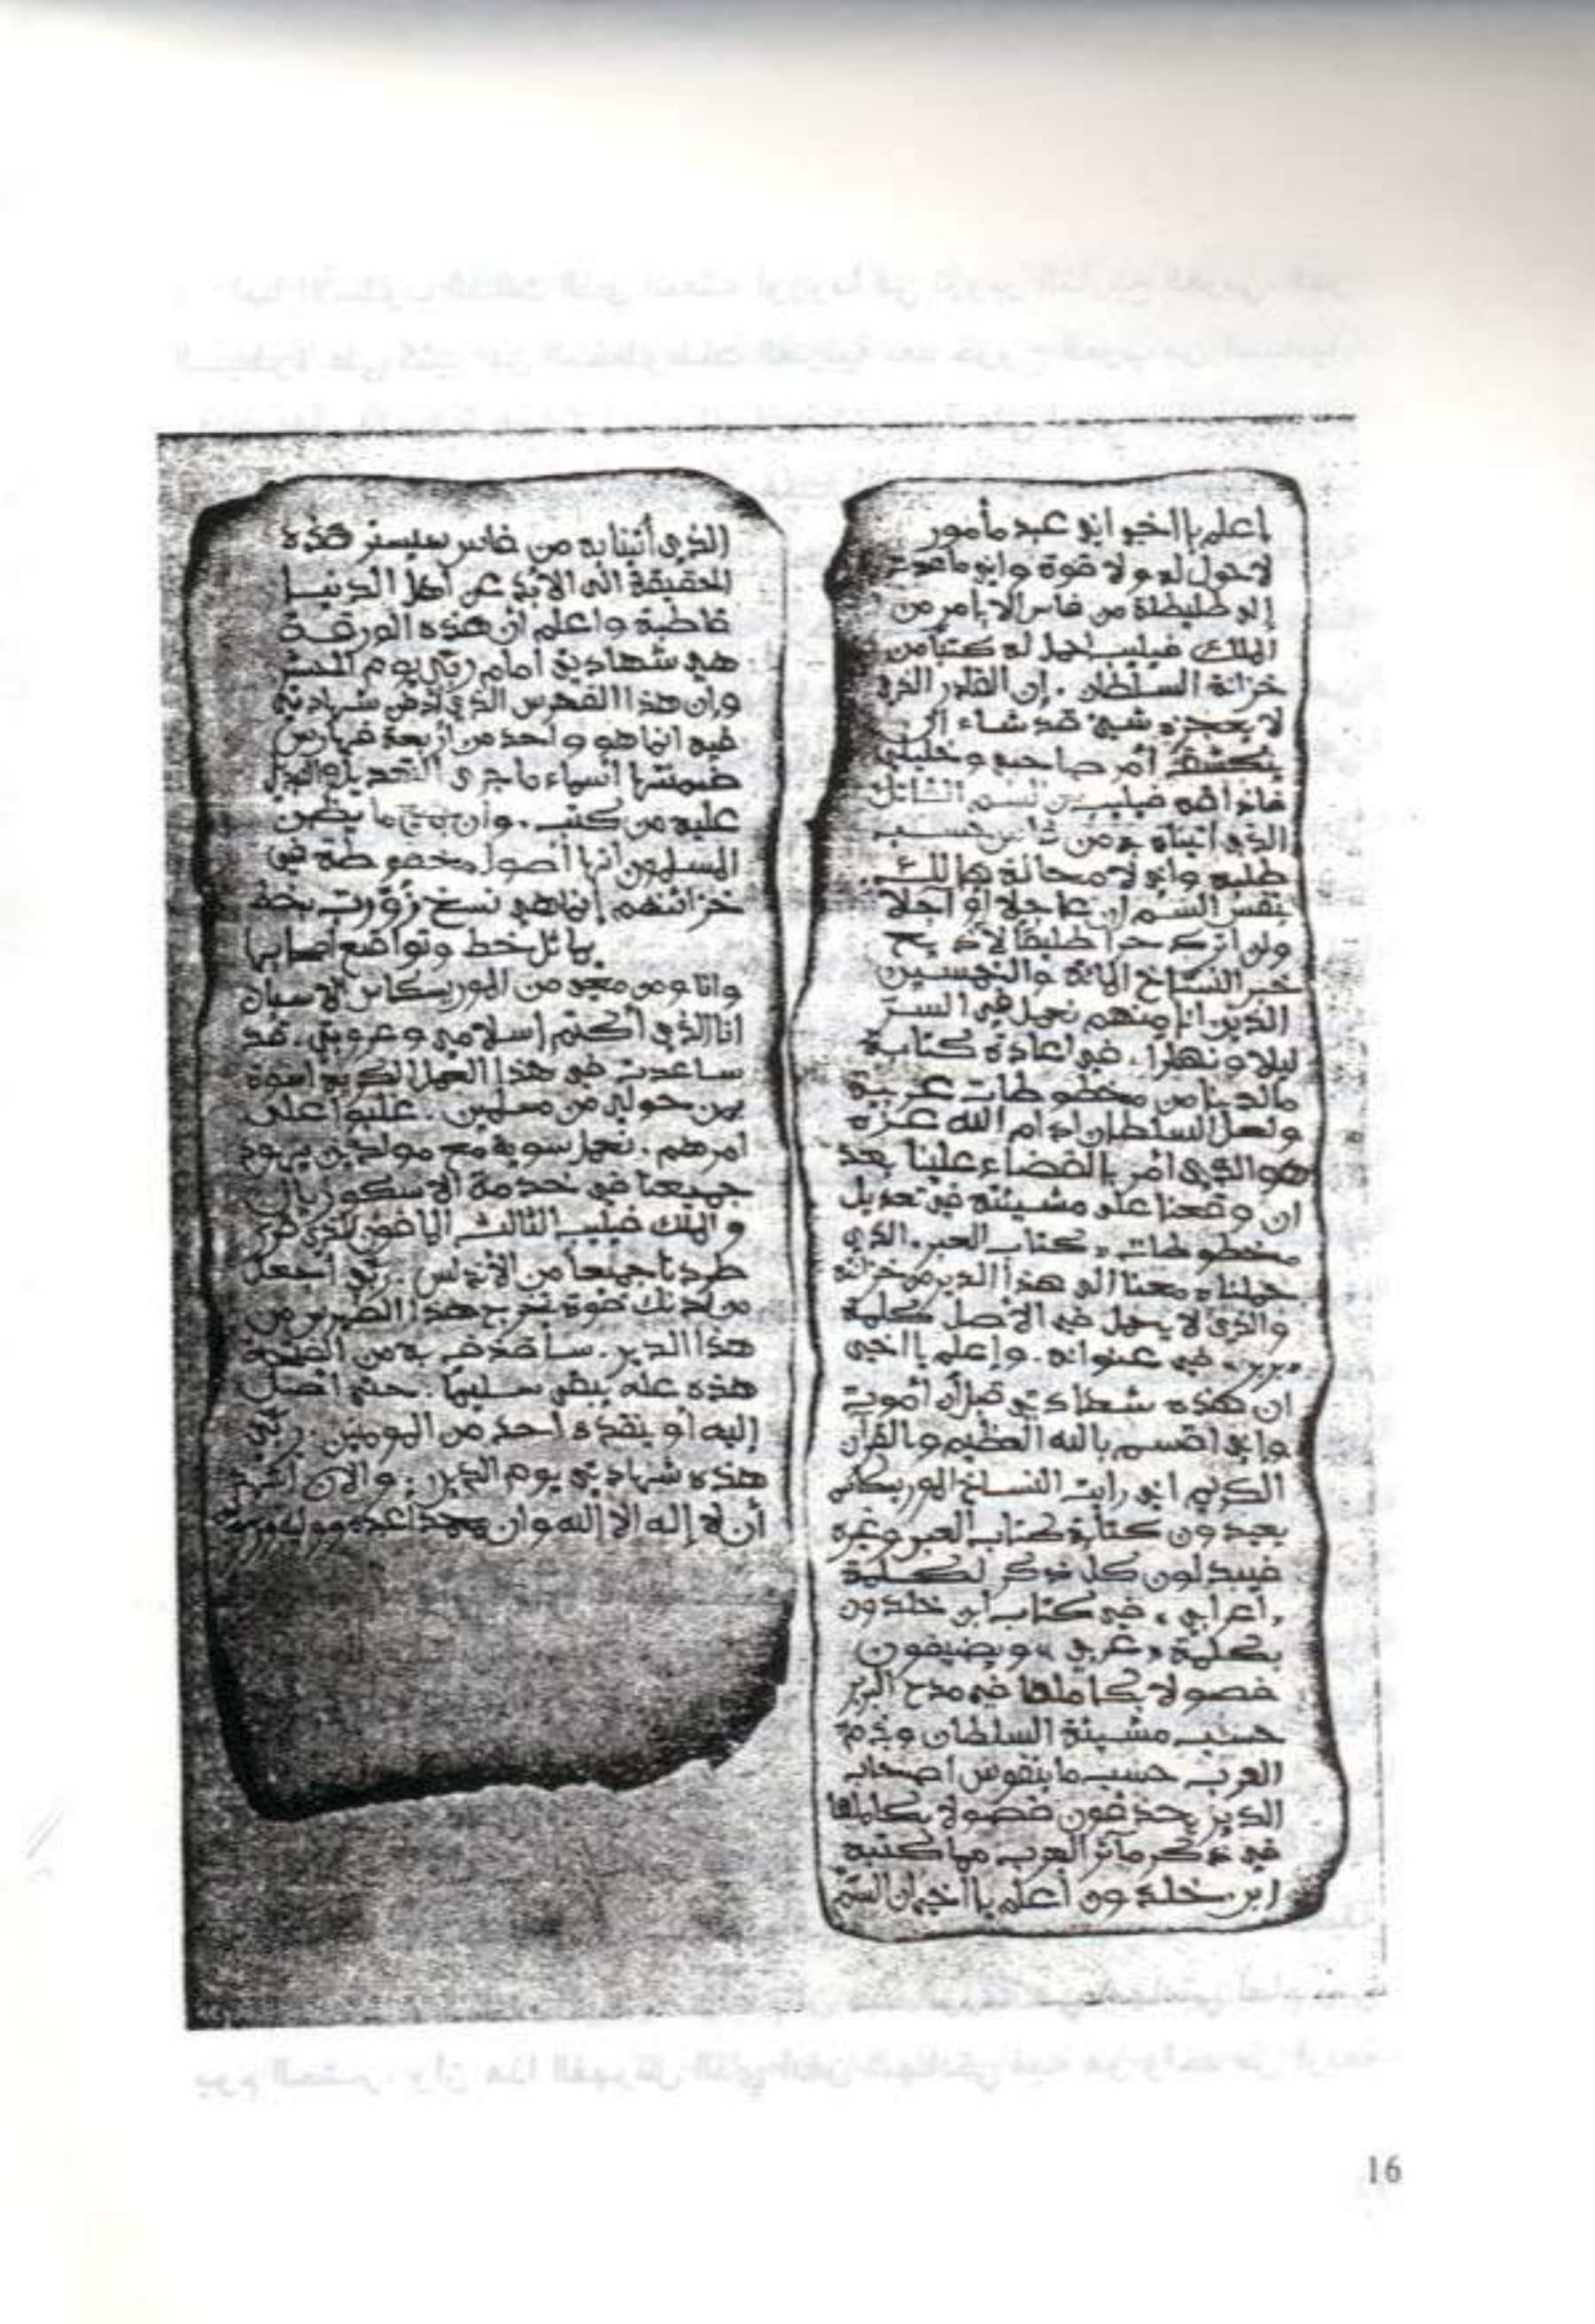 إعلم ياالخي اني عبد مأمور
لاحول له ولا قوة واني ماعدت
إلى طليطلة من فاس إلا بأمر من
الملك فيليب احمل له كتبا من
خزانة السلطان . إن القادر الذي
لا يعجزه شيئ قد شاء ان
ينكشف أمر صاحبي وخليلي
السم القاتل
الذي أتيناه به من فاس حسب
طلبه وأني لا محالة هالك
بنفس السم إن عاجلا أو آجلا
ولن أترك حرا طليقا لأذيع
خبر النساخ المائة والخمسين
الذين انا منهم نعمل في السر
ليلا ونهارا . في إعادة كتابة
مالدينا من مخطوطات عربية
ولعل السلطان ادام الله عزه
هو الذي أمر بالقضاء علينا بعد
ان وقعنا على مشيئته في تعديل
مخطوطات « كتاب العبر » الذي
حملناه معنا الى هذا الدير من خزانته
والذي لا يحمل في الاصل كلمة
« بربر » في عنوانه . وإعلم ياالخي
ان هذه شهادتي قبل أن أموت
وإني اقسم بالله العظيم والقرآن
الكريم اني رايت النساخ الموريسكاس
يعيدون كتابة كتاب العبر وغيره
فيبدلون كل ذكر لكلمة
« أعرابي » في كتاب ابن خلدون
بكلمة « عربي » ويضيفون
فصولا بكاملها في مدح البربر
حسب مشيئة السلطان وذم
العرب حسب ما بنفوس أصحاب
الدير يحذفون فصولا بكاملها
في ذكر مآثر العرب مما كتبه
ابن خلدون أعلم ياالخي ان السم
الذي أتينا به من فاس سيستر هذه
الحقيقة الى الابد عن أهل الدنيا
قاطبة واعلم أن هذه الورقة
هي شهادتي أمام ربي يوم الحشر
وإن هذا الفهرس الذي شهادتي
فيه انما هو واحد من أربعة فهارس
ضمنتها أسماء ماجرى التعديل
عليه من كتب . وأن جميع ما يظن
المسلمون أنها أصول محفوظة في
خزائنهم إنما هي نسخ زورت بخط
يماثل خط وتواقيع أصحابها
وانا ومن معي من الموريسكاس الاسبان
انا الذي أكتم إسلامي وعروبتي . قد
ساعدت في هذا العمل الكريه اسوة
بمن حولي من مسلمين . غلبوا على
امرهم . نعمل سوية مع مولدين يهود
جميعا في خدمة الاسكوريال
و الملك فيليب الثالث المأفون الذي قرر
طردنا جميعا من الأندلس . ربي أجعل
من لدنك قوة تخرج هذا الفهرس من
هذا الدير . سأقذف به من
هذه عله يبقى سليما . حتى أصل
إليه أو ينقذه أحد من المومنين . ربي
هذه شهادتي يوم الدين . والان اشهد
أن لا إله الا الله وان محمدا عبده ورسوله
16